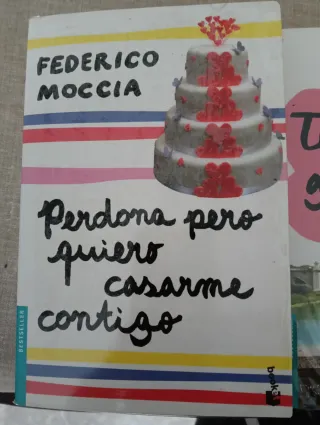 FEDERICO
MOCCIA
Perdona pero
quiero
casarme
contigo
BESTSELLER
book